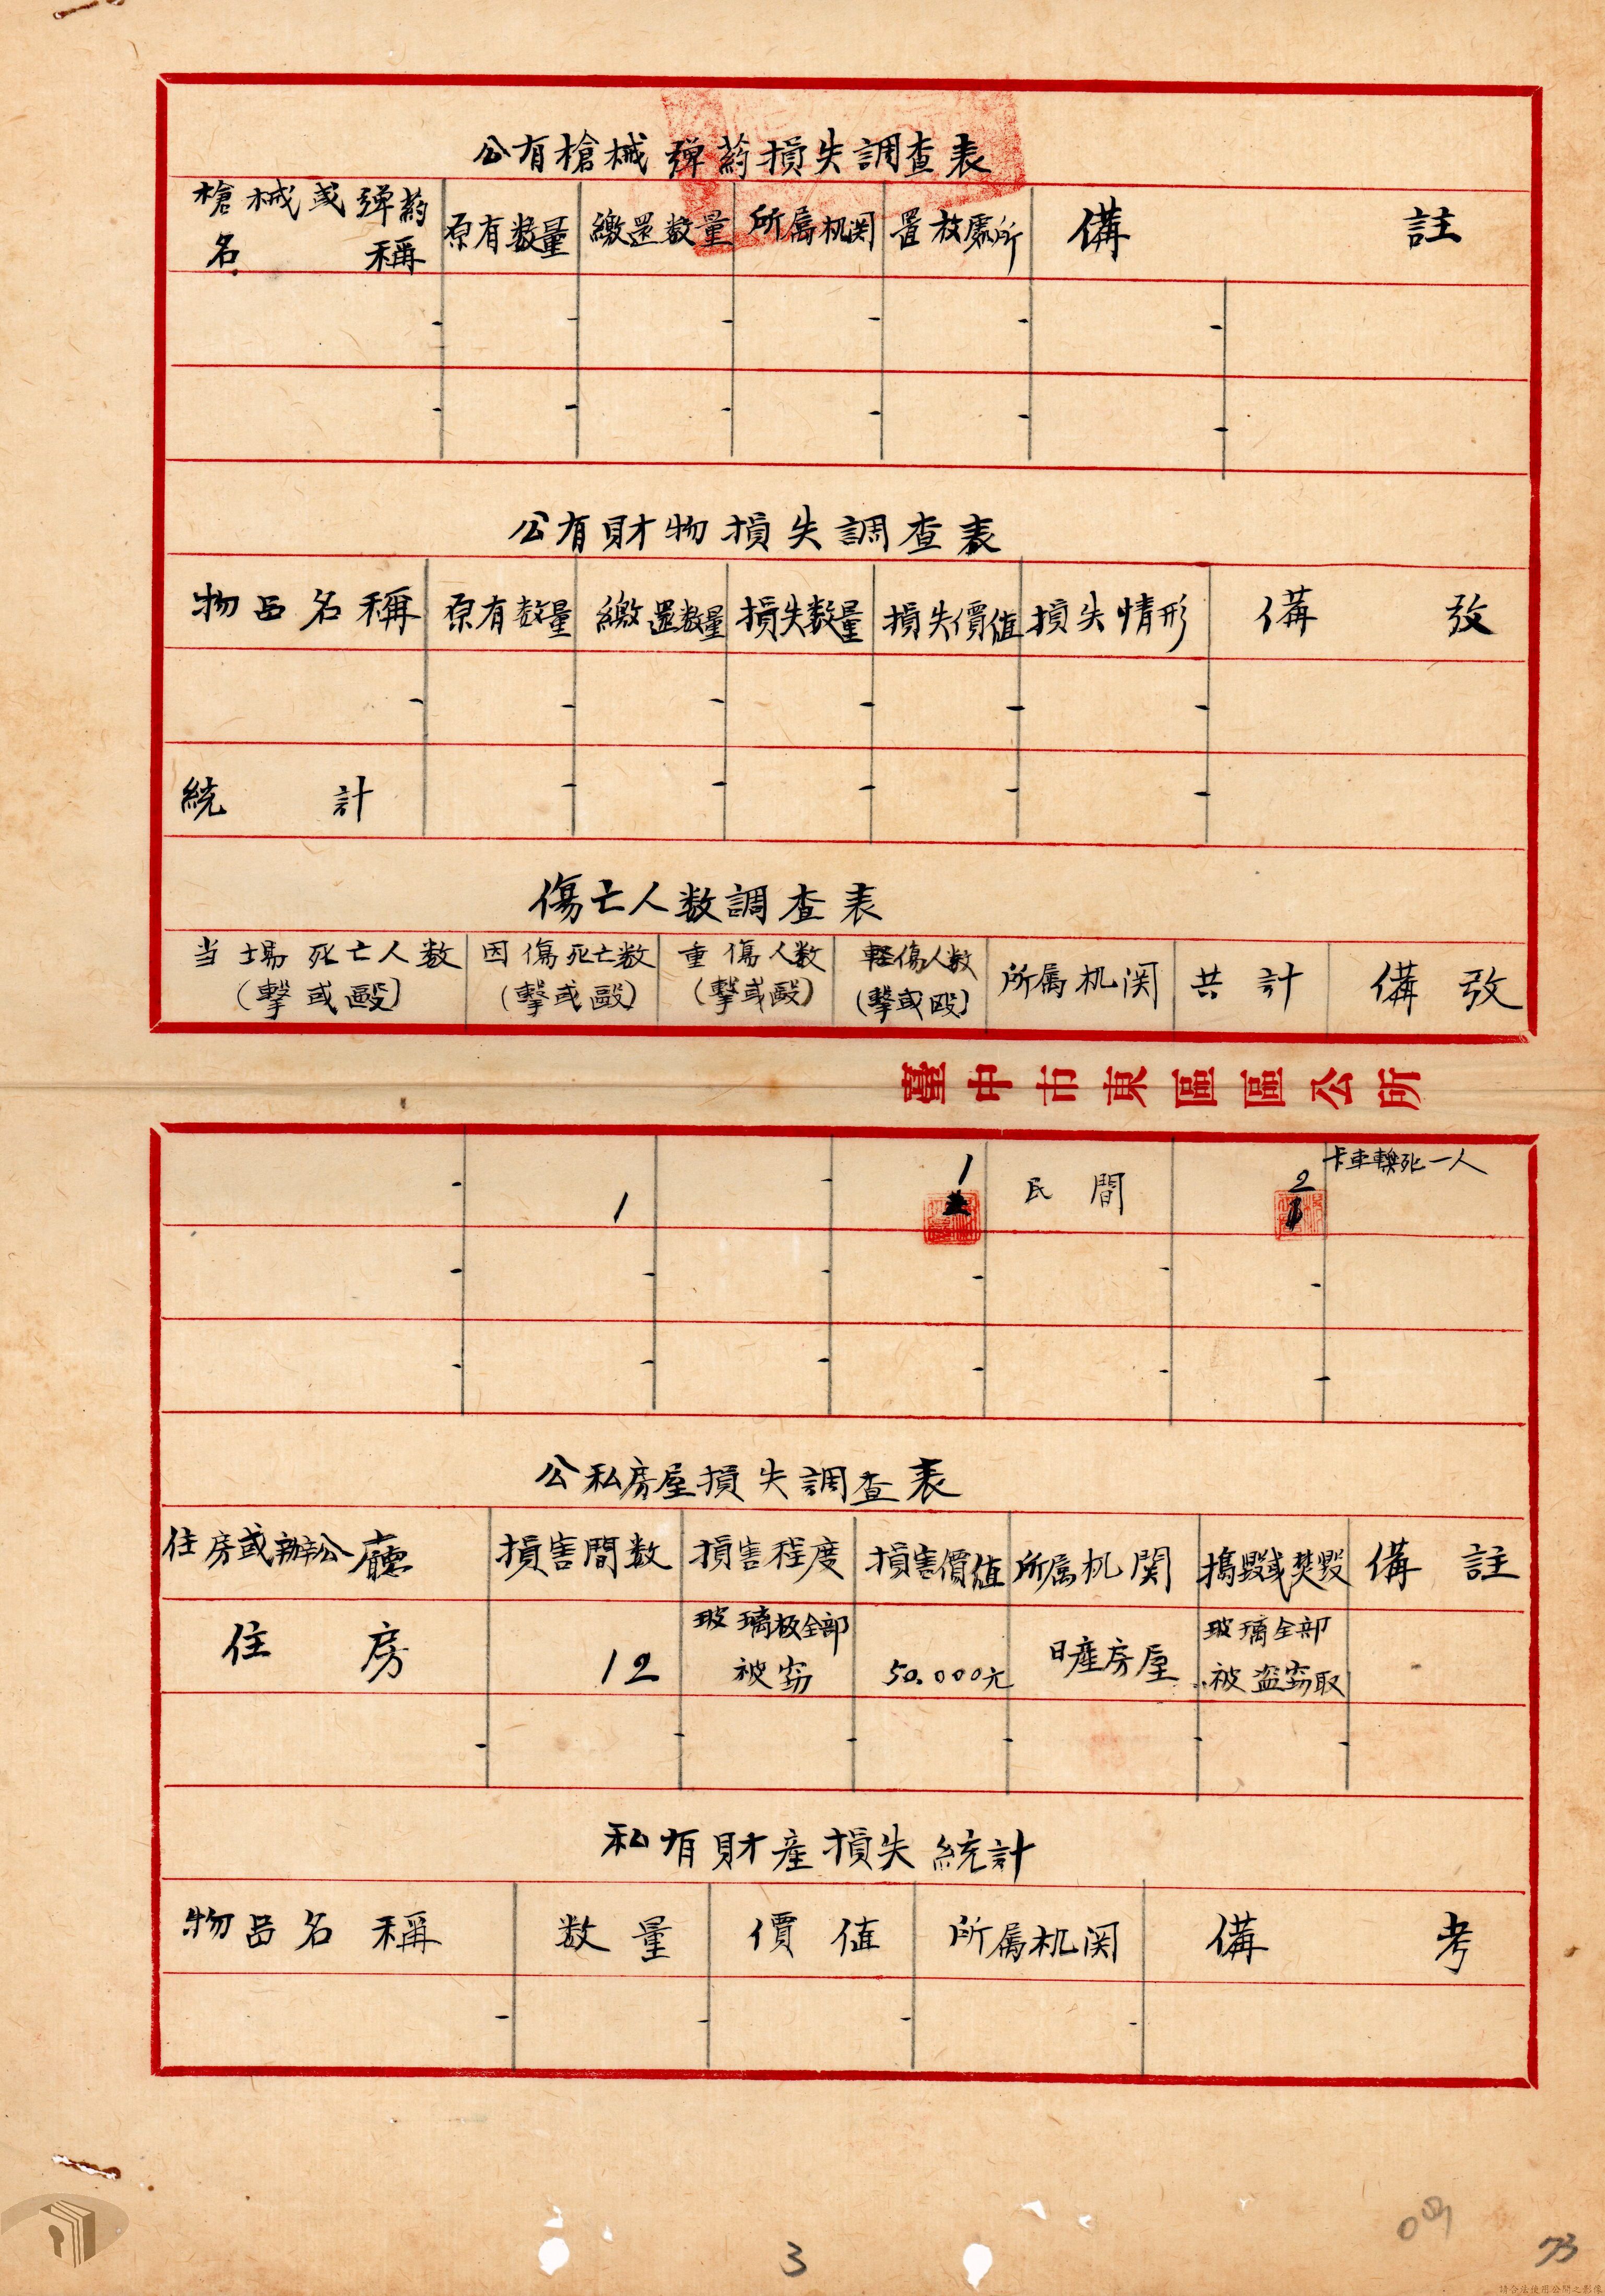 公有槍械弾药損失調查表
槍械或弾药名稱 原有数量 繳還数量 所属机関 置放處所 備註
公有財物損失調查表
物品名稱 原有数量 繳還数量 損失数量 損失價值 損失情形 備攷
統計
傷亡人数調查表
当場死亡人数(擊或毆) 因傷死亡数(擊或毆) 重傷人数(擊或毆) 軽傷人数(擊或毆) 所属机関 共計 備攷
臺中市東區區公所
1 1 民間 2 卡車轢死一人
公私房屋損失調查表
住房或辦公廳 損害間数 損害程度 損害價值 所属机関 搗毀或焚毀 備註
住房 12 玻璃板全部被窃 50.000元 日產房屋 玻璃全部被盗窃取
私有財産損失統計
物品名稱 数量 價值 所属机関 備考
3
73
請合法使用公開之影像